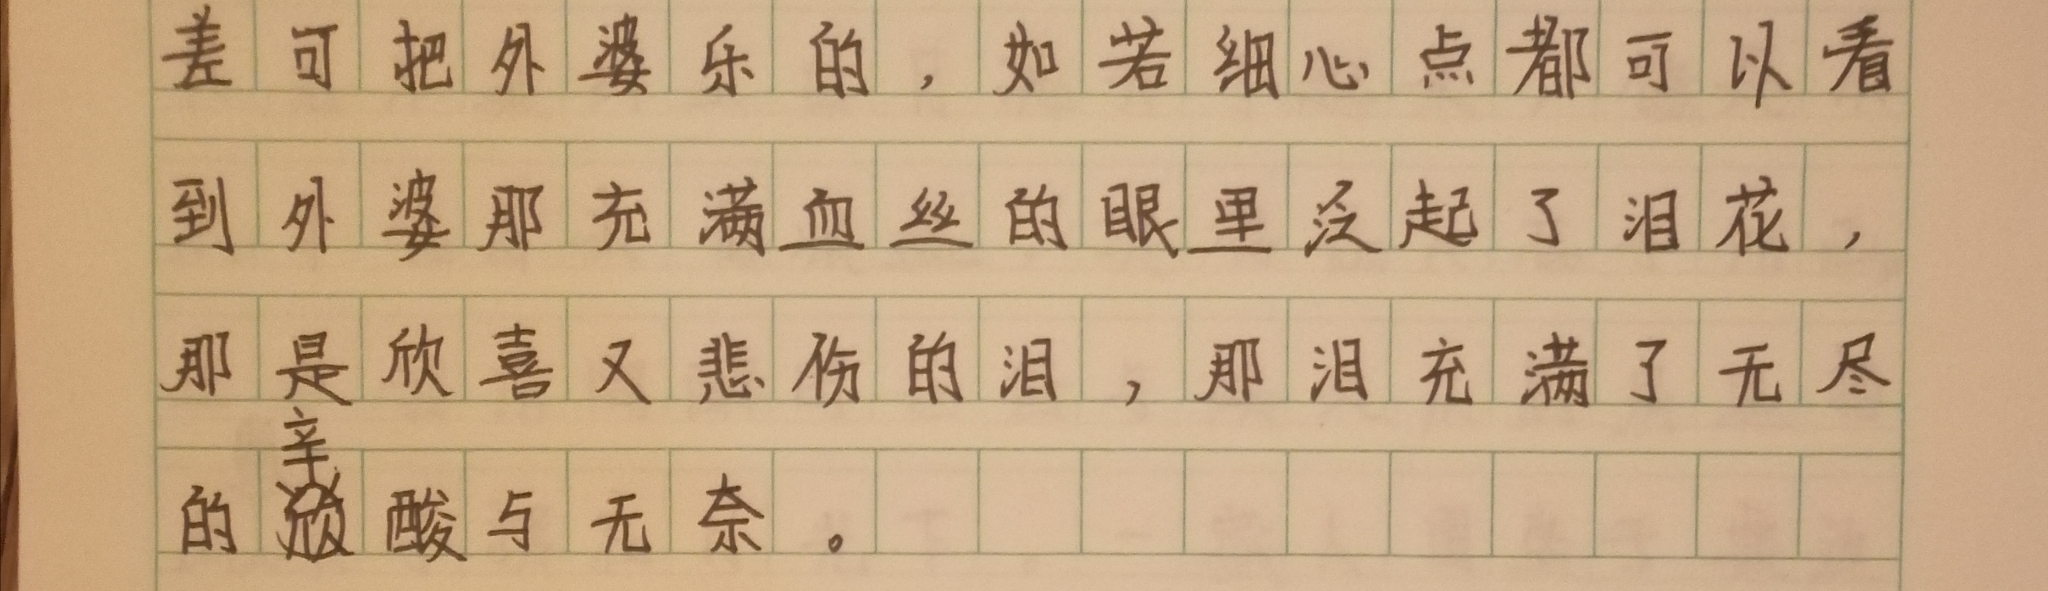 差可把外婆乐的，如若细心点都可以看
到外婆那充满血丝的眼里泛起了泪花，
那是欣喜又悲伤的泪，那泪充满了无尽
的辛酸与无奈。